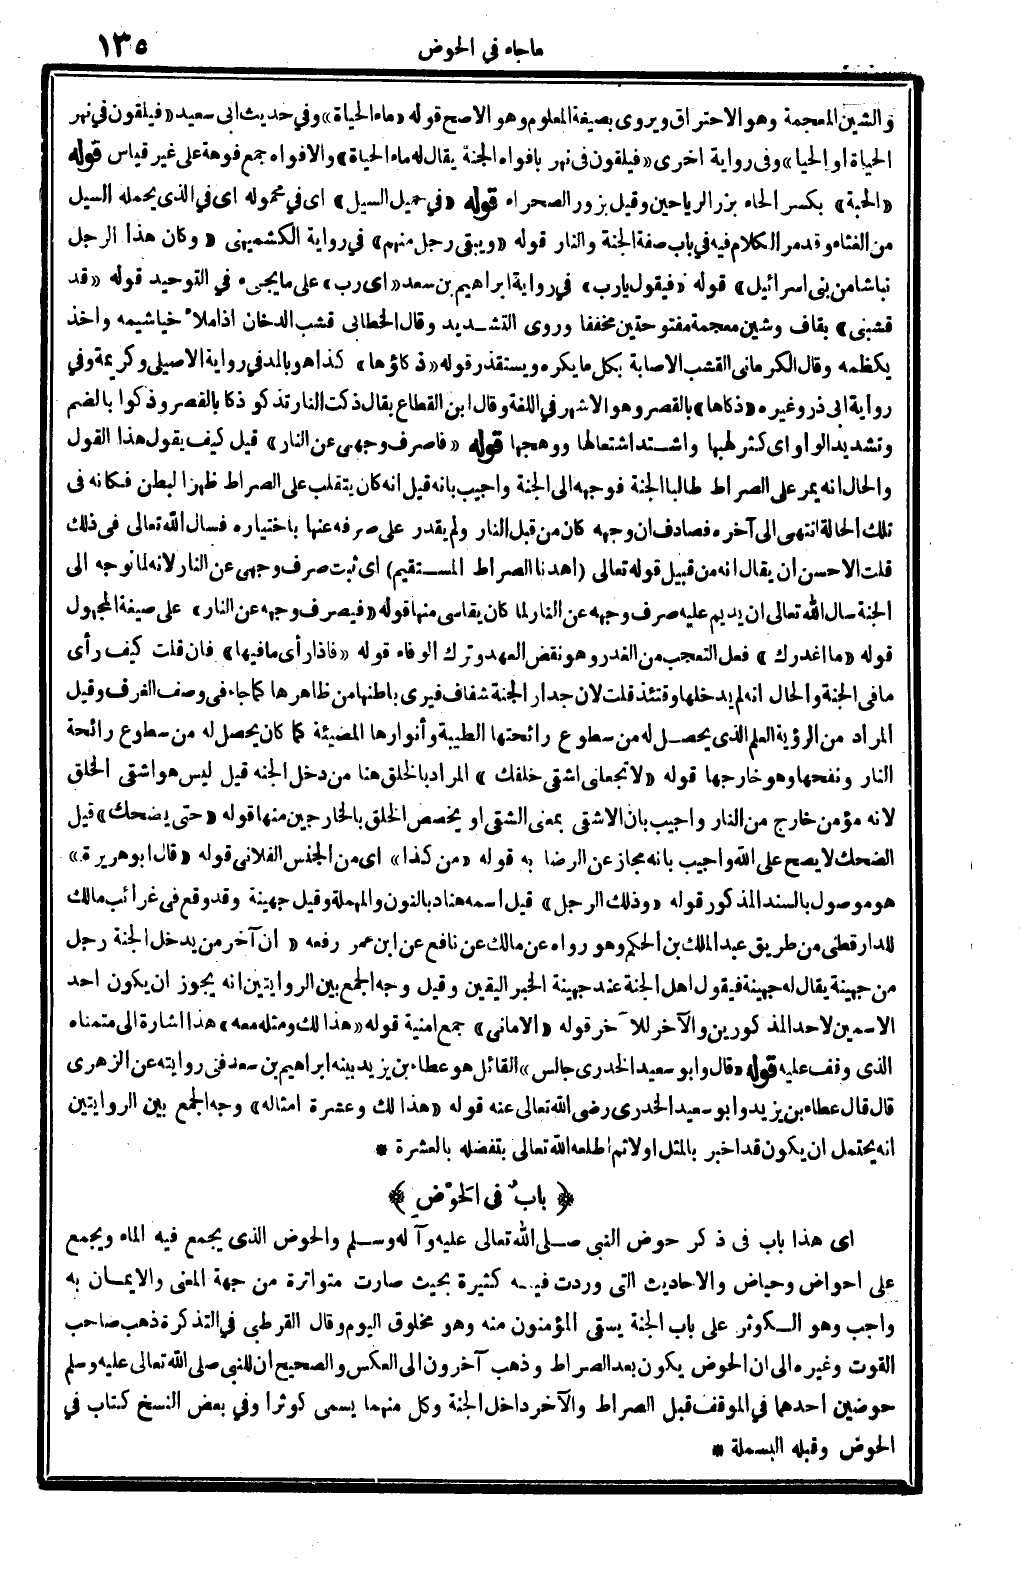 ماجاء في الحوض ١٣٥
والشين المعجمة وهو الاحتراق ويروى بصيغة المعلوم وهو الاصح قوله «ماء الحياة» وفي حديث ابى سعيد «فيلقون في نهر
الحياة او الحيا» وفى رواية اخرى «فيلقون فى نهر بافواه الجنة يقال له ماء الحياة» والافواه جمع فوهة على غير قياس قوله
«الحبة» بكسر الحاء بزر الرياحين وقيل بزور الصحراء قوله «في حميل السيل» اى في محموله اى في الذى يحمله السيل
من الغثاء وقد مر الكلام فيه في باب صفة الجنة والنار قوله «ويبقى رجل منهم» في رواية الكشميهنى «وكان هذا الرجل
نباشا من بنى اسرائيل» قوله «فيقول يارب» في رواية ابراهيم بن سعد «اى رب» على مايجىء في التوحيد قوله «قد
قشبنى» بقاف وشين معجمة مفتوحتين مخففا وروى التشديد وقال الخطابى قشب الدخان اذا ملأ خياشيمه واخذ
يكظمه وقال الكرمانى القشب الاصابة بكل ما يكره ويستقذر قوله «ذكاؤها» كذا هو بالمد في رواية الاصيلى وكريمة وفي
رواية ابى ذر وغيره «ذكاها» بالقصر وهو الاشهر في اللغة وقال ابن القطاع يقال ذكت النار تذكو ذكا بالقصر وذكوا بالضم
وتشديد الواو اى كثر لهبها واشتد اشتعالها ووهجها قوله «فاصرف وجهى عن النار» قيل كيف يقول هذا القول
والحال انه يمر على الصراط طالبا الجنة فوجهه الى الجنة واجيب بانه قيل انه كان يتقلب على الصراط ظهرا لبطن فكانه فى
تلك الحالة انتهى الى آخره فصادف ان وجهه كان من قبل النار ولم يقدر على صرفه عنها باختياره فسال الله تعالى فى ذلك
قلت الاحسن أن يقال انه من قبيل قوله تعالى (اهدنا الصراط المستقيم) اى ثبت صرف وجهى عن النار لانه لما توجه الى
الجنة سال الله تعالى ان يديم عليه صرف وجهه عن النار لما كان يقاسى منها قوله «فيصرف وجهه عن النار» على صيغة المجهول
قوله «ما اغدرك» فعل التعجب من الغدر وهو نقض العهد وترك الوفاء قوله «فاذا رأى مافيها» فان قلت كيف رأى
مافى الجنة والحال انه لم يدخلها وقتئذ قلت لان جدار الجنة شفاف فيرى باطنها من ظاهرها كما جاء فى وصف الغرف وقيل
المراد من الرؤية العلم الذى يحصل له من سطوع رائحتها الطيبة وأنوارها المضيئة كما كان يحصل له من سطوع رائحة
النار ونفحها وهو خارجها قوله «لاتجعلنى اشقى خلقك» المراد بالخلق هنا من دخل الجنه قيل ليس هو اشقى الخلق
لانه مؤمن خارج من النار واجيب بان الاشقى بمعنى الشقى او يخصص الخلق بالخارجين منها قوله «حتى يضحك» قيل
الضحك لايصح على الله واجيب بانه مجاز عن الرضا به قوله «من كذا» اى من الجنس الفلانى قوله «قال ابو هريرة»
هو موصول بالسند المذكور قوله «وذلك الرجل» قيل اسمه هناد بالنون والمهملة وقيل جهينة وقد وقع فى غرائب مالك
للدارقطنى من طريق عبد الملك بن الحكم وهو رواه عن مالك عن نافع عن ابن عمر رفعه «ان آخر من يدخل الجنة رجل
من جهينة يقال له جهينة فيقول اهل الجنة عند جهينة الخبر اليقين وقيل وجه الجمع بين الروايتين انه يجوز ان يكون احد
الاسمين لاحد المذكورين والآخر للآخر قوله «الامانى» جمع امنية قوله «هذا لك ومثله معه» هذا اشارة الى متمناه
الذى وقف عليه قوله «قال وابو سعيد الخدرى جالس» القائل هو عطاء بن يزيد بينه ابراهيم بن سعد فى روايته عن الزهرى
قال قال عطاء بن يزيد وابو سعيد الخدرى رضى الله تعالى عنه قوله «هذا لك وعشرة امثاله» وجه الجمع بين الروايتين
انه يحتمل ان يكون قد اخبر بالمثل اولا ثم اطلعه الله تعالى بتفضله بالعشرة *
﴿ بابٌ فى الحَوْضِ ﴾
اى هذا باب فى ذكر حوض النبى صلى الله تعالى عليه وآله وسلم والحوض الذى يجمع فيه الماء ويجمع
على احواض وحياض والاحاديث التى وردت فيه كثيرة بحيث صارت متواترة من جهة المعنى والايمان به
واجب وهو الكوثر على باب الجنة يسقى المؤمنون منه وهو مخلوق اليوم وقال القرطبى في التذكرة ذهب صاحب
القوت وغيره الى ان الحوض يكون بعد الصراط وذهب آخرون الى العكس والصحيح أن للنبى صلى الله تعالى عليه وسلم
حوضين احدهما في الموقف قبل الصراط والآخر داخل الجنة وكل منهما يسمى كوثرا وفي بعض النسخ كتاب في
الحوض وقبله البسملة *